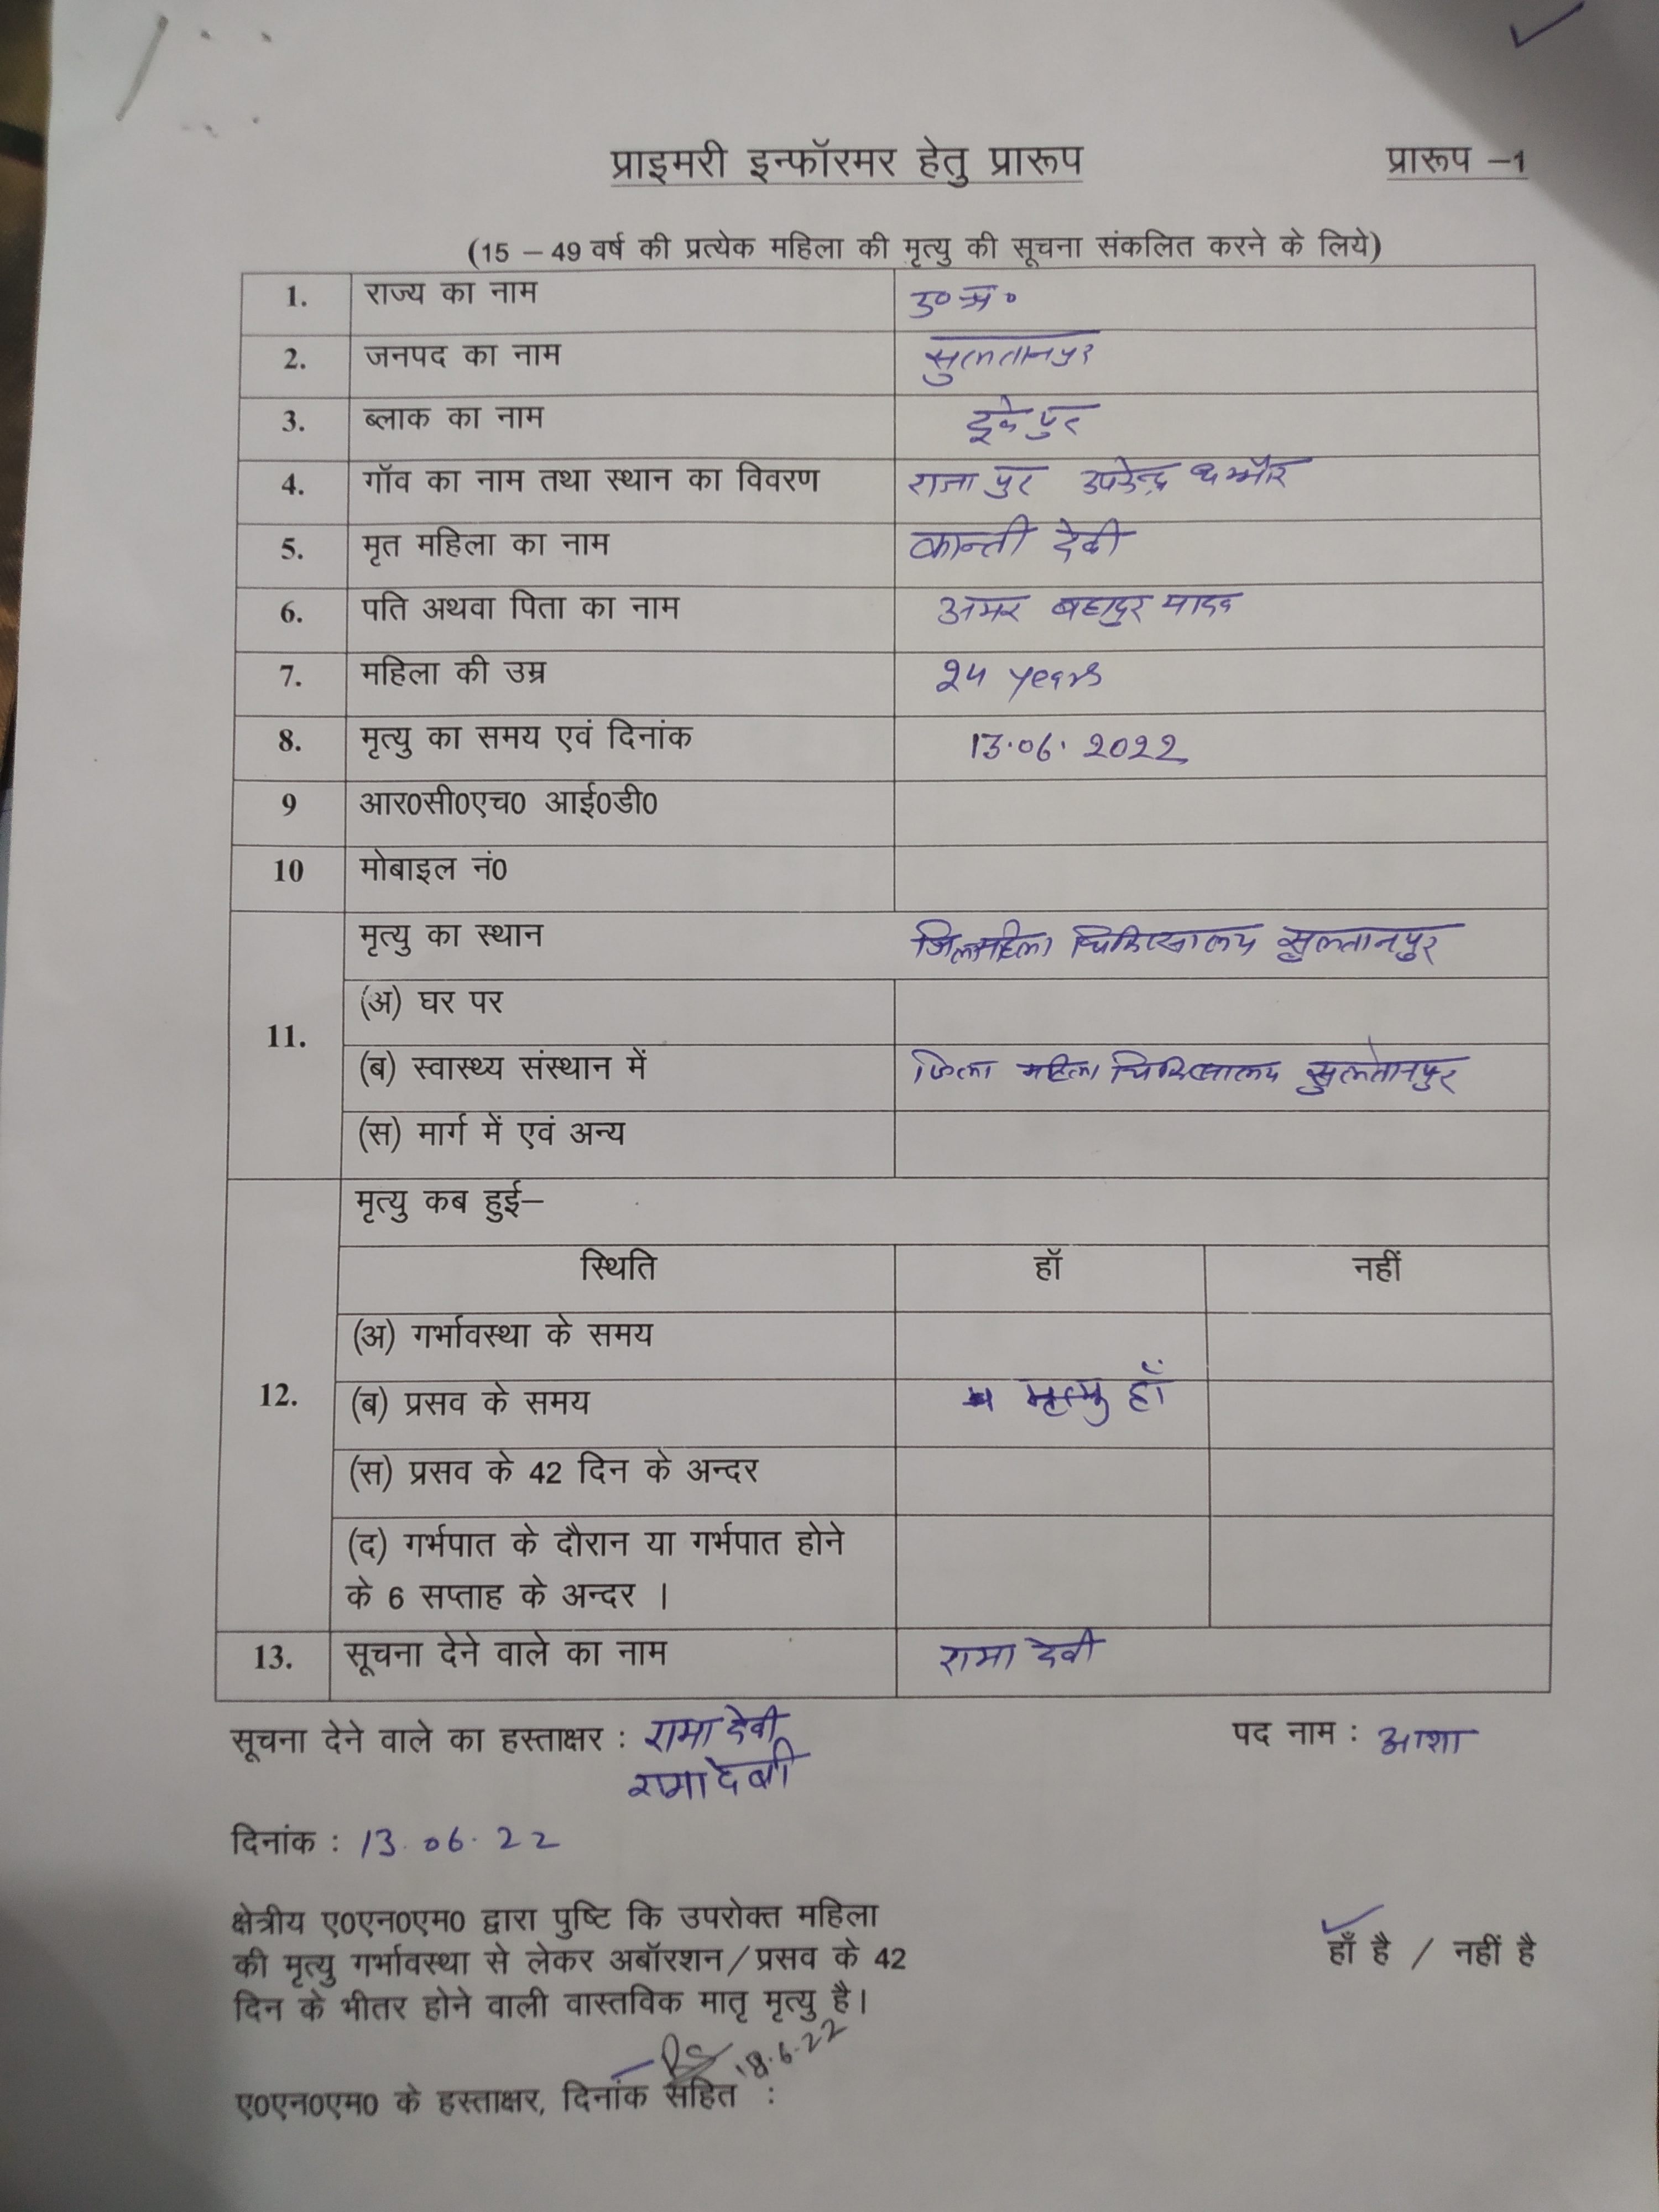 प्राइमरी इन्फॉरमर हेतु प्रारूप प्रारूप –1
(15 – 49 वर्ष की प्रत्येक महिला की मृत्यु की सूचना संकलित करने के लिये)
1. राज्य का नाम उ० प्र०
2. जनपद का नाम सुलतानपुर
3. ब्लाक का नाम
4. गॉव का नाम तथा स्थान का विवरण राजा पुर
5. मृत महिला का नाम कान्ती देवी
6. पति अथवा पिता का नाम अमर बहादुर यादव
7. महिला की उम्र years
8. मृत्यु का समय एवं दिनांक 13.06.2022
9 आर0सी0एच0 आई0डी0
10 मोबाइल नं0
मृत्यु का स्थान जिला महिला चिकित्सालय सुलतानपुर
(अ) घर पर
11.
(ब) स्वास्थ्य संस्थान में जिला महिला चिकित्सालय सुलतानपुर
(स) मार्ग में एवं अन्य
मृत्यु कब हुई–
स्थिति हॉ नहीं
(अ) गर्भावस्था के समय
12.
(ब) प्रसव के समय मृत्यु हाँ
(स) प्रसव के 42 दिन के अन्दर
(द) गर्भपात के दौरान या गर्भपात होने
के 6 सप्ताह के अन्दर ।
13. सूचना देने वाले का नाम रामा देवी
सूचना देने वाले का हस्ताक्षर : रामा देवी पद नाम : आशा
रामा देवी
दिनांक : 13.06.22
क्षेत्रीय ए0एन0एम0 द्वारा पुष्टि कि उपरोक्त महिला
की मृत्यु गर्भावस्था से लेकर अबॉरशन/प्रसव के 42 हाँ है / नहीं है
दिन के भीतर होने वाली वास्तविक मातृ मृत्यु है।
18.6.22
ए0एन0एम0 के हस्ताक्षर, दिनांक सहित :